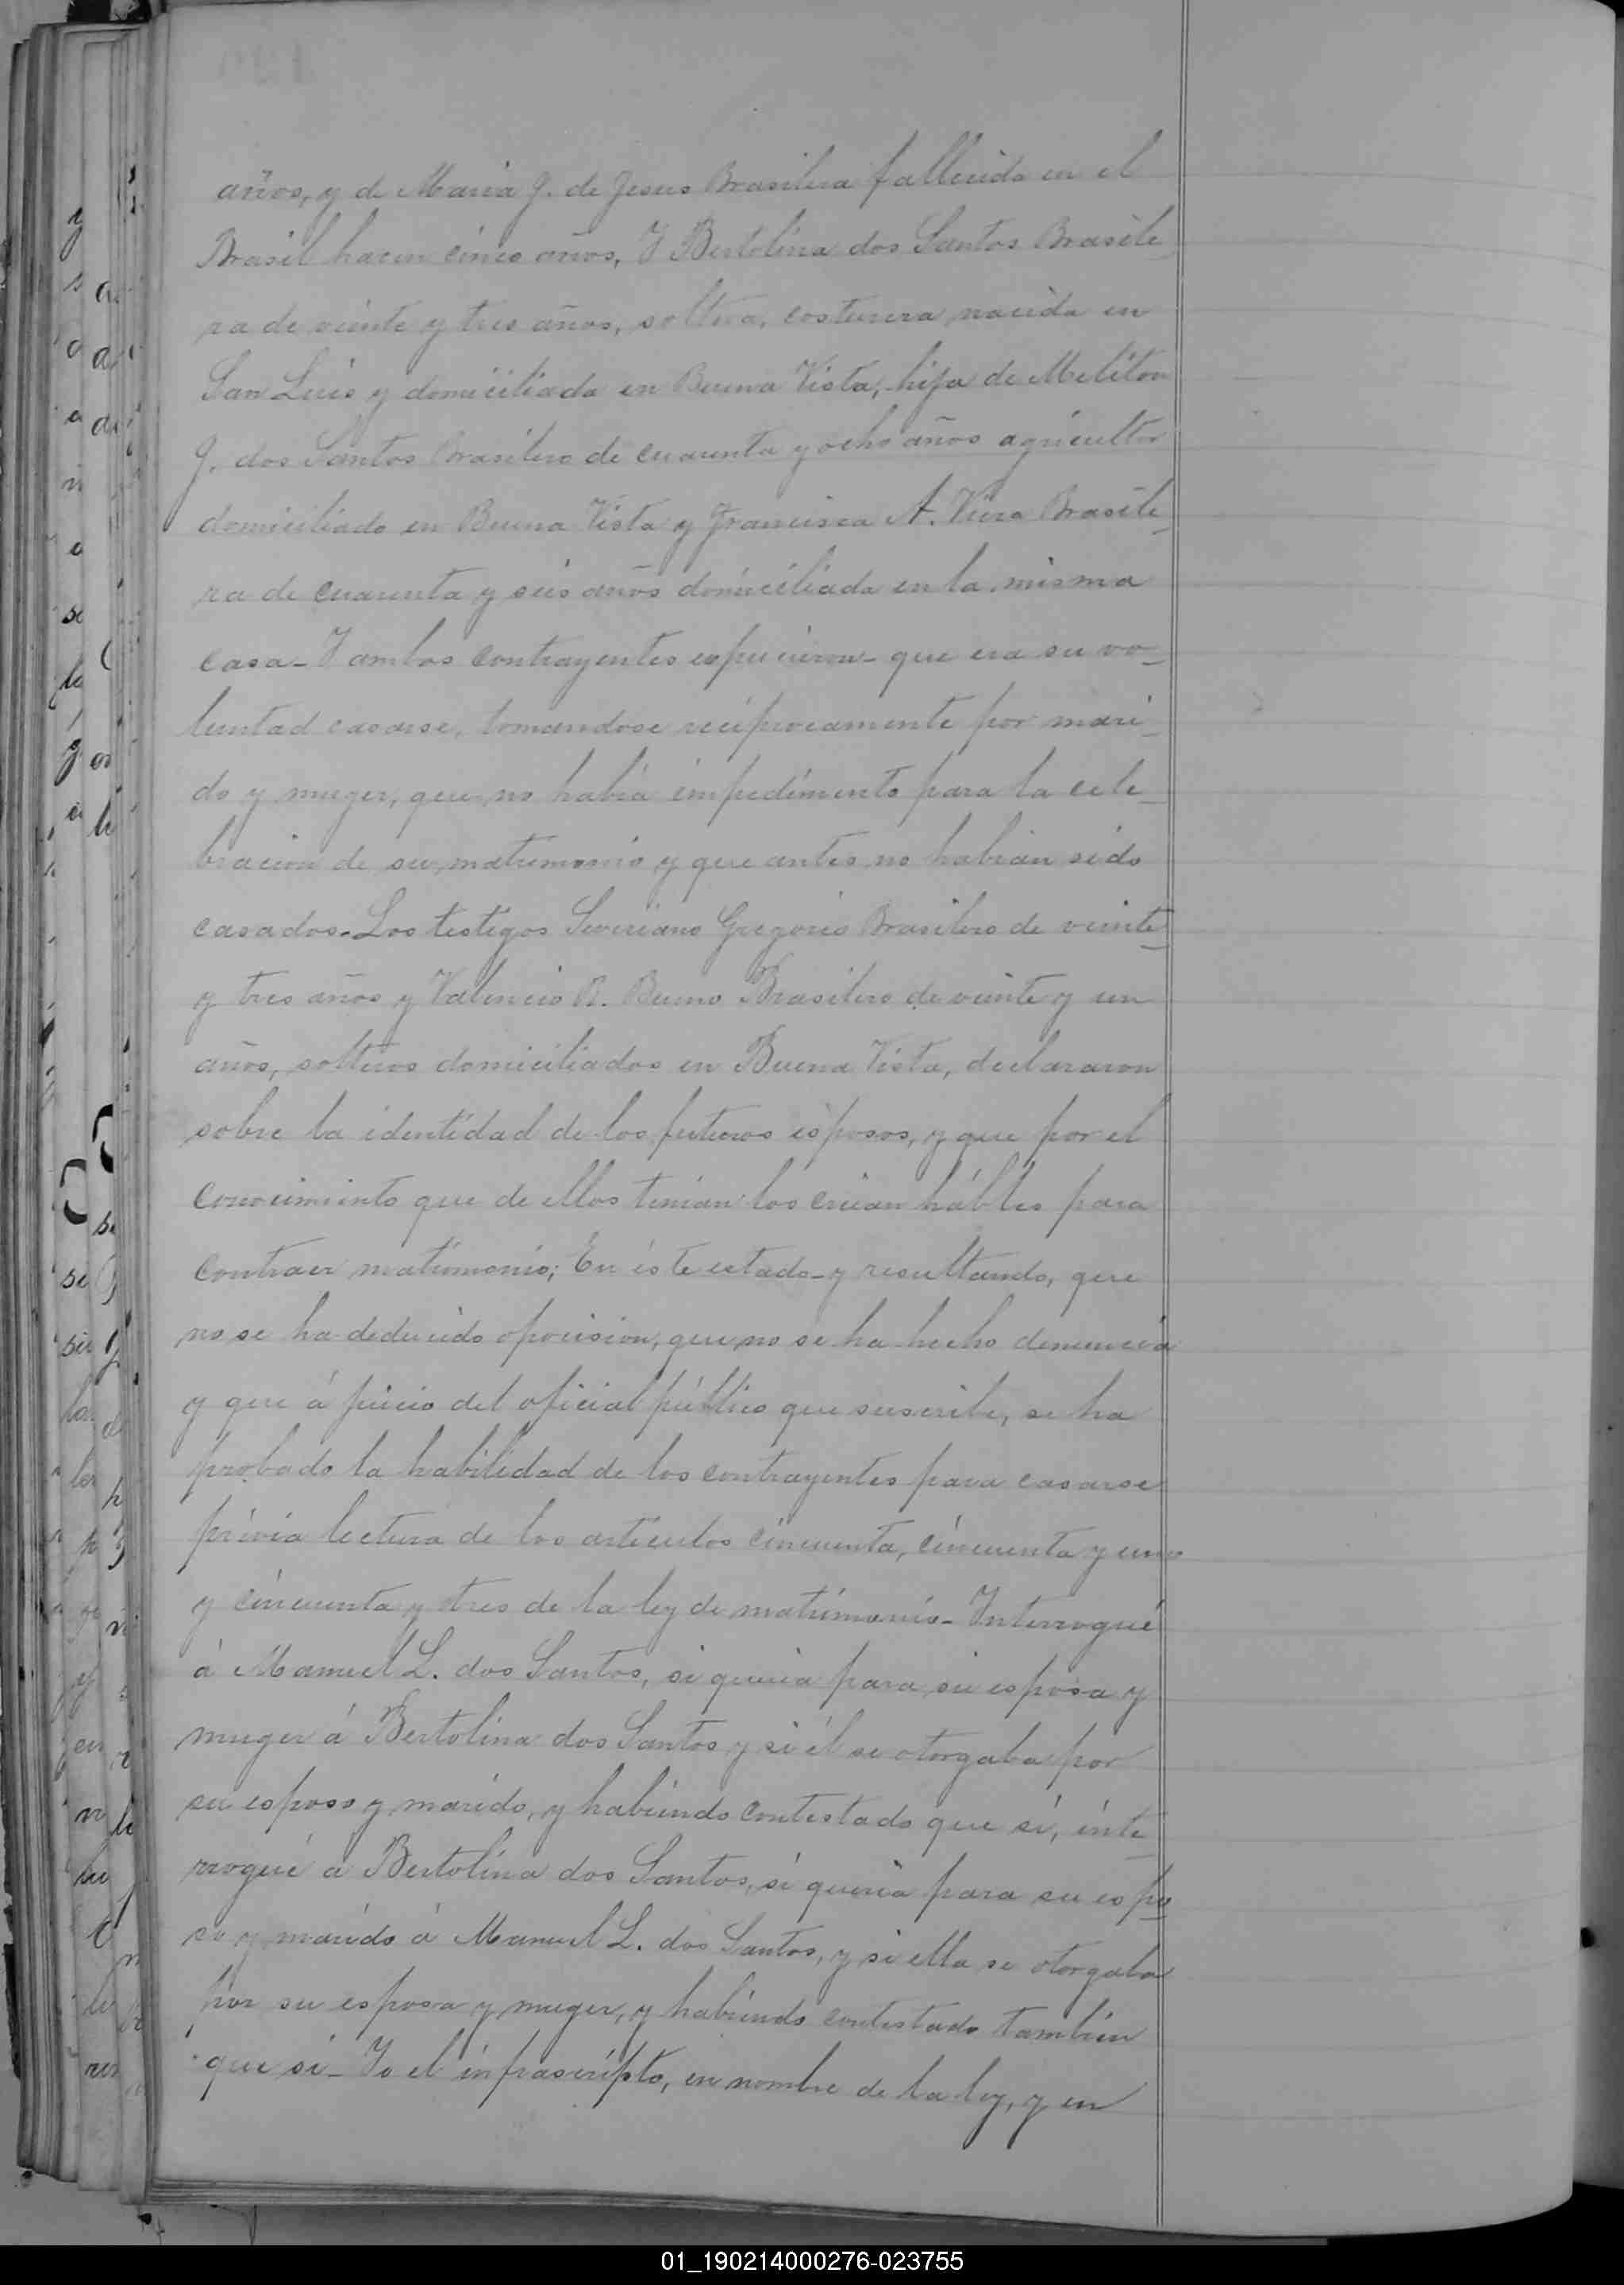 años, y de Maria J. de Jesus Brasilera fallecida en el
Brasil hacen cinco años, Y Bertolina dos Santos Brasile_
ra de veinte y tres años, soltera, costurera, nacida en
San Luis y domiciliada en Buena Vista, hija de Meliton
J. dos Santos Brasilero de cuarenta y ocho años agricultor
domiciliado en Buena Vista y Francisca A. Viera Brasile_
ra de cuarenta y seis años domiciliada en la misma
casa_ Y ambos contrayentes expucieron_ que era su vo_
luntad casarse, tomandose reciprocamente por mari_
do y muger, que no habia impedimento para la cele_
bracion de su matrimonio y que antes no habian sido
casados_ Los testigos Severiano Gregorio Brasilero de veinte_
y tres años y Valencio R. Bueno Brasilero de veinte y un
años, solteros domiciliados en Buena Vista, declararon
sobre la identidad de los futuros esposos, y que por el
conocimiento que de ellos tenian los creian hábles para
contraer matrimonio; En éste estado_ y resultando, que
no se ha deducido oposision, que no se ha hecho denuncia
y que á juicio del oficial público que suscribe, se ha
probado la habilidad de los contrayentes para casarse
prévia lectura de los articulos cincuenta, cincuenta y uno
y cincuenta y tres de la ley de matrimonio_ Interrogué
á Manuel L. dos Santos, si queria para su esposa y
muger á Bertolina dos Santos y si él se otorgaba por
su esposo y marido, y habiendo contestado que sí, inte_
rrogué á Bertolina dos Santos, si queria para su espo_
so y marido á Manuel L. dos Santos, y si ella se otorgaba
por su esposa y muger, y habiendo contestado tambien
que sí_ Yo el infrascripto, en nombre de la ley, y en
01_190214000276-023755